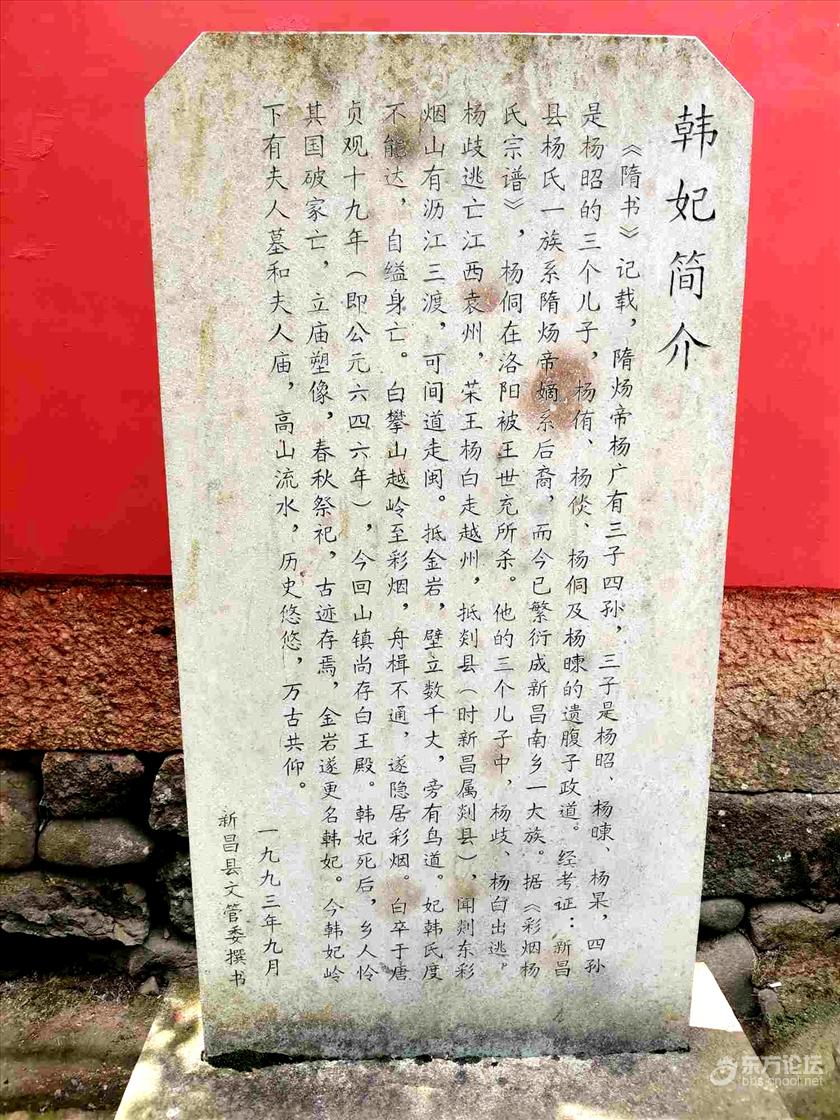 韩妃简介
《隋书》记载，隋炀帝杨广有三子四孙，三子是杨昭、杨暕、杨杲，四孙
是杨昭的三个儿子，杨侑、杨倓、杨侗及杨暕的遗腹子政道。经考证：新昌
县杨氏一族系隋炀帝嫡系后裔，而今已繁衍成新昌南乡一大族。据《彩烟杨
氏宗谱》，杨侗在洛阳被王世充所杀。他的三个儿子中，杨歧、杨白出逃，
杨歧逃亡江西袁州，荣王杨白走越州，抵剡县（时新昌属剡县），闻剡东彩
烟山有沥江三渡，可间道走闽。抵金岩，壁立数千丈，旁有鸟道。妃韩氏度
不能达，自缢身亡。白攀山越岭至彩烟，舟楫不通，遂隐居彩烟。白卒于唐
贞观十九年（即公元六四六年），今回山镇尚存白王殿。韩妃死后，乡人怜
其国破家亡，立庙塑像，春秋祭祀，古迹存焉，金岩遂更名韩妃。今韩妃岭
下有夫人墓和夫人庙，高山流水，历史悠悠，万古共仰。
一九九三年九月
新昌县文管委撰书
东方论坛
bbs.cnool.net